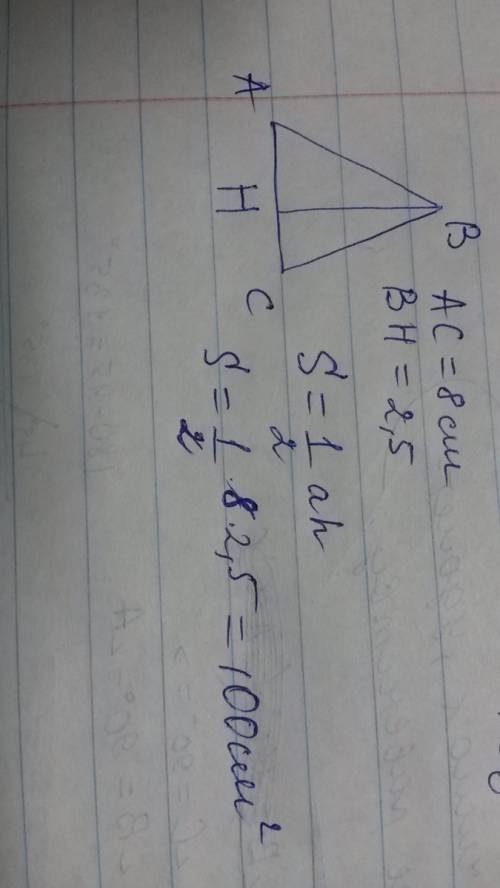 B
A H C
AC = 8 см
BH = 2,5
S = 1/2 ah
S = 1/2 8.2,5 = 100 см²